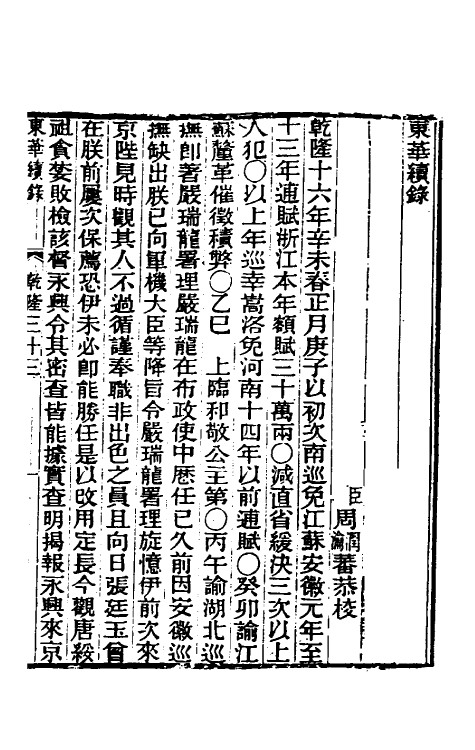 東華續錄
臣周潤蕃恭校
乾隆十六年辛未春正月庚子以初次南巡免江蘇安徽元年至
十三年逋賦浙江本年額賦三十萬兩○減直省緩決三次以上
人犯○以上年巡幸嵩洛免河南十四年以前逋賦○癸卯諭江
蘇釐革催徵積弊○乙巳 上臨和敬公主第○丙午諭湖北巡
撫卽著嚴瑞龍署理嚴瑞龍在布政使中歷任已久前因安徽巡
撫缺出朕已向軍機大臣等降旨令嚴瑞龍署理旋憶伊前次來
京陛見時觀其人不過循謹奉職非出色之員且向日張廷玉曾
在朕前屢次保薦恐伊未必卽能勝任是以改用定長今觀唐綏
祖貪婪敗檢該督永興令其密查皆能據實查明揭報永興來京
東華續錄 乾隆三十三 一